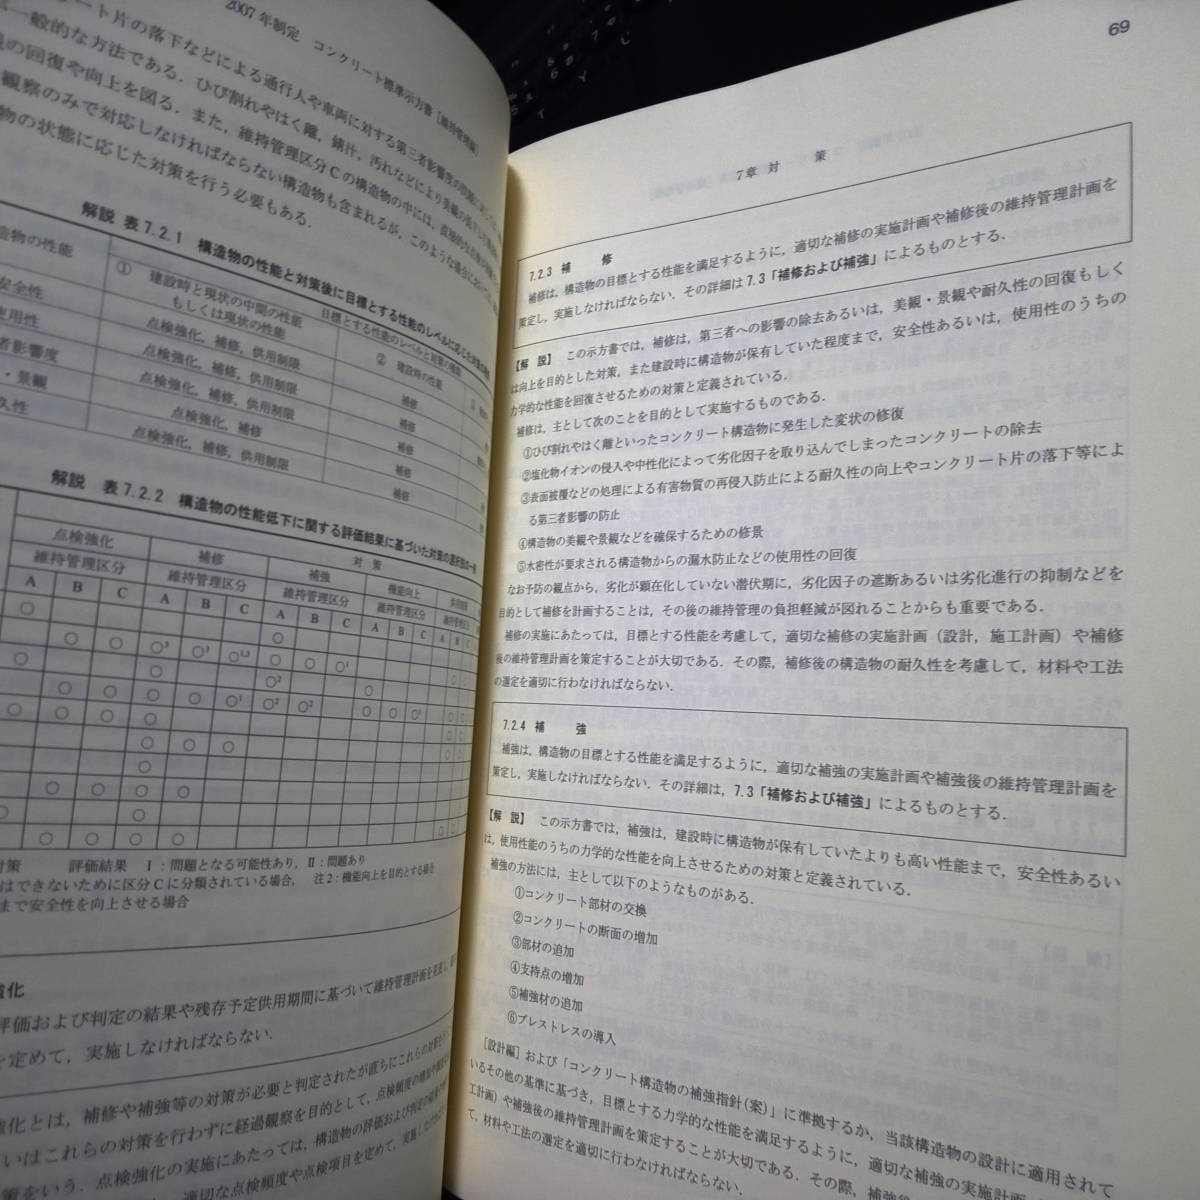 2007年制定 コンクリート標準示方書 [維持管理編]
ート片の落下などによる通行人や車両に対する第三者影響度の問題
一般的な方法である．ひび割れやはく離，錆汁，汚れなどにより美観の低下した
の回復や向上を図る．また，維持管理区分Cの構造物の中には，直接的な
観察のみで対応しなければならない構造物も含まれるが，このような場合
物の状態に応じた対策を行う必要もある．
解説 表7.2.1 構造物の性能と対策後に目標とする性能のレベルに応じた対策の
造物の性能
目標とする性能のレベルと対策の種類
① 建設時と現状の中間の性能
もしくは現状の性能
② 建設時の性能
安全性
点検強化，補修，供用制限
補修
使用性
点検強化，補修，供用制限
補修
者影響度
点検強化，補修，供用制限
補修
・景観
点検強化，補修
補修
久性
点検強化，補修，供用制限
補修
解説 表7.2.2 構造物の性能低下に関する評価結果に基づいた対策の選択肢の一例
対 策
点検強化 補修 補強 機能向上 供用制限
維持管理区分 維持管理区分 維持管理区分 維持管理区分 維持管理区分
A B C A B C A B C A B C A B
対策 評価結果 Ⅰ：問題となる可能性あり，Ⅱ：問題あり
はできないために区分Cに分類されている場合， 注2：機能向上を目的とする場合
まで安全性を向上させる場合
強化
評価および判定の結果や残存予定供用期間に基づいて維持管理計画を見直し，
を定めて，実施しなければならない．
強化とは，補修や補強等の対策が必要と判定されたが直ちにこれらの対策を
いはこれらの対策を行わずに経過観察を目的として，点検頻度の増加や
策をいう．点検強化の実施にあたっては，構造物の評価および判定の結果
適切な点検頻度や点検項目を定めて，実施し
69
7章 対 策
7.2.3 補 修
補修は，構造物の目標とする性能を満足するように，適切な補修の実施計画や補修後の維持管理計画を
策定し，実施しなければならない．その詳細は7.3「補修および補強」によるものとする．
【解 説】 この示方書では，補修は，第三者への影響の除去あるいは，美観・景観や耐久性の回復もしく
は向上を目的とした対策，また建設時に構造物が保有していた程度まで，安全性あるいは，使用性のうちの
力学的な性能を回復させるための対策と定義されている．
補修は，主として次のことを目的として実施するものである．
①ひび割れやはく離といったコンクリート構造物に発生した変状の修復
②塩化物イオンの侵入や中性化によって劣化因子を取り込んでしまったコンクリートの除去
③表面被覆などの処理による有害物質の再侵入防止による耐久性の向上やコンクリート片の落下等によ
る第三者影響の防止
④構造物の美観や景観などを確保するための修景
⑤水密性が要求される構造物からの漏水防止などの使用性の回復
なお予防の観点から，劣化が顕在化していない潜伏期に，劣化因子の遮断あるいは劣化進行の抑制などを
目的として補修を計画することは，その後の維持管理の負担軽減が図れることからも重要である．
補修の実施にあたっては，目標とする性能を考慮して，適切な補修の実施計画（設計，施工計画）や補修
後の維持管理計画を策定することが大切である．その際，補修後の構造物の耐久性を考慮して，材料や工法
の選定を適切に行わなければならない．
7.2.4 補 強
補強は，構造物の目標とする性能を満足するように，適切な補強の実施計画や補強後の維持管理計画を
策定し，実施しなければならない．その詳細は，7.3「補修および補強」によるものとする．
【解 説】 この示方書では，補強は，建設時に構造物が保有していたよりも高い性能まで，安全性あるい
は，使用性能のうちの力学的な性能を向上させるための対策と定義されている．
補強の方法には，主として以下のようなものがある．
①コンクリート部材の交換
②コンクリートの断面の増加
③部材の追加
④支持点の増加
⑤補強材の追加
⑥プレストレスの導入
[設計編]および「コンクリート構造物の補強指針(案)」に準拠するか，当該構造物の設計に適用されて
いるその他の基準に基づき，目標とする力学的な性能を満足するように，適切な補強の実施計画
工計画）や補強後の維持管理計画を策定することが大切である．その際，補強後
て，材料や工法の選定を適切に行わなければならない．